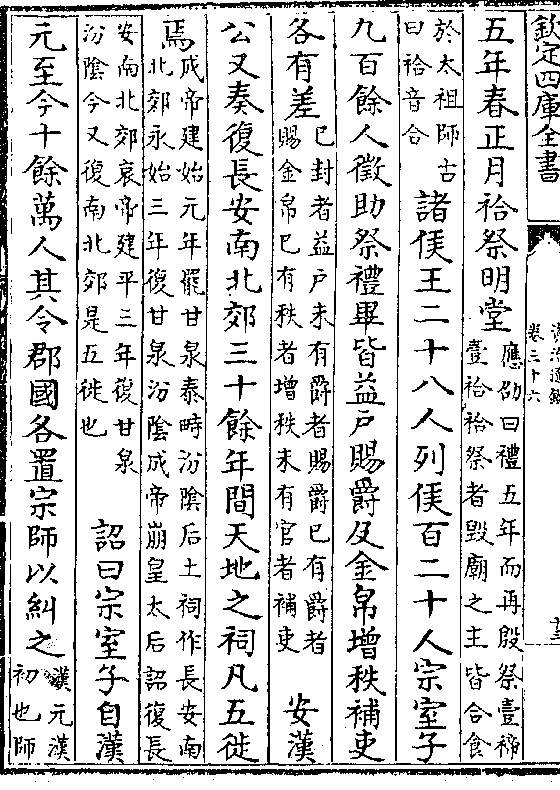 欽定四庫全書
卷三十六
五年春正月祫祭明堂
應劭曰禮五年而再殷祭壹禘
壹祫祫祭者毁廟之主皆合食
於太祖師古
曰祫音合
諸侯王二十八人列侯百二十人宗室子
九百餘人徵助祭禮畢皆益戶賜爵及金帛增秩補吏
各有差
已封者益戶未有爵者賜爵已有爵者
賜金帛已有秩者增秩未有官者補吏
安漢
公又奏復長安南北郊三十餘年間天地之祠凡五徙
焉
成帝建始元年罷甘泉泰畤汾陰后土祠作長安南
北郊永始三年復甘泉汾陰成帝崩皇太后詔復長
安南北郊哀帝建平三年復甘泉
汾陰今又復南北郊是五徙也
詔曰宗室子自漢
元至今十餘萬人其令郡國各置宗師以糾之
漢元漢
初也師